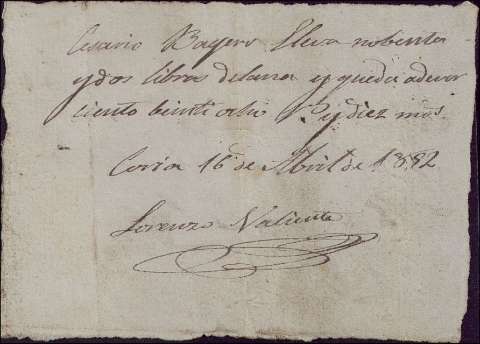 Cesario Bayero Lleva nobenta
y dos libras de lana y queda a dever
ciento binti ocho R. y diez mds.
Coria 16 de Abril de 1882
Lorenzo Valiente